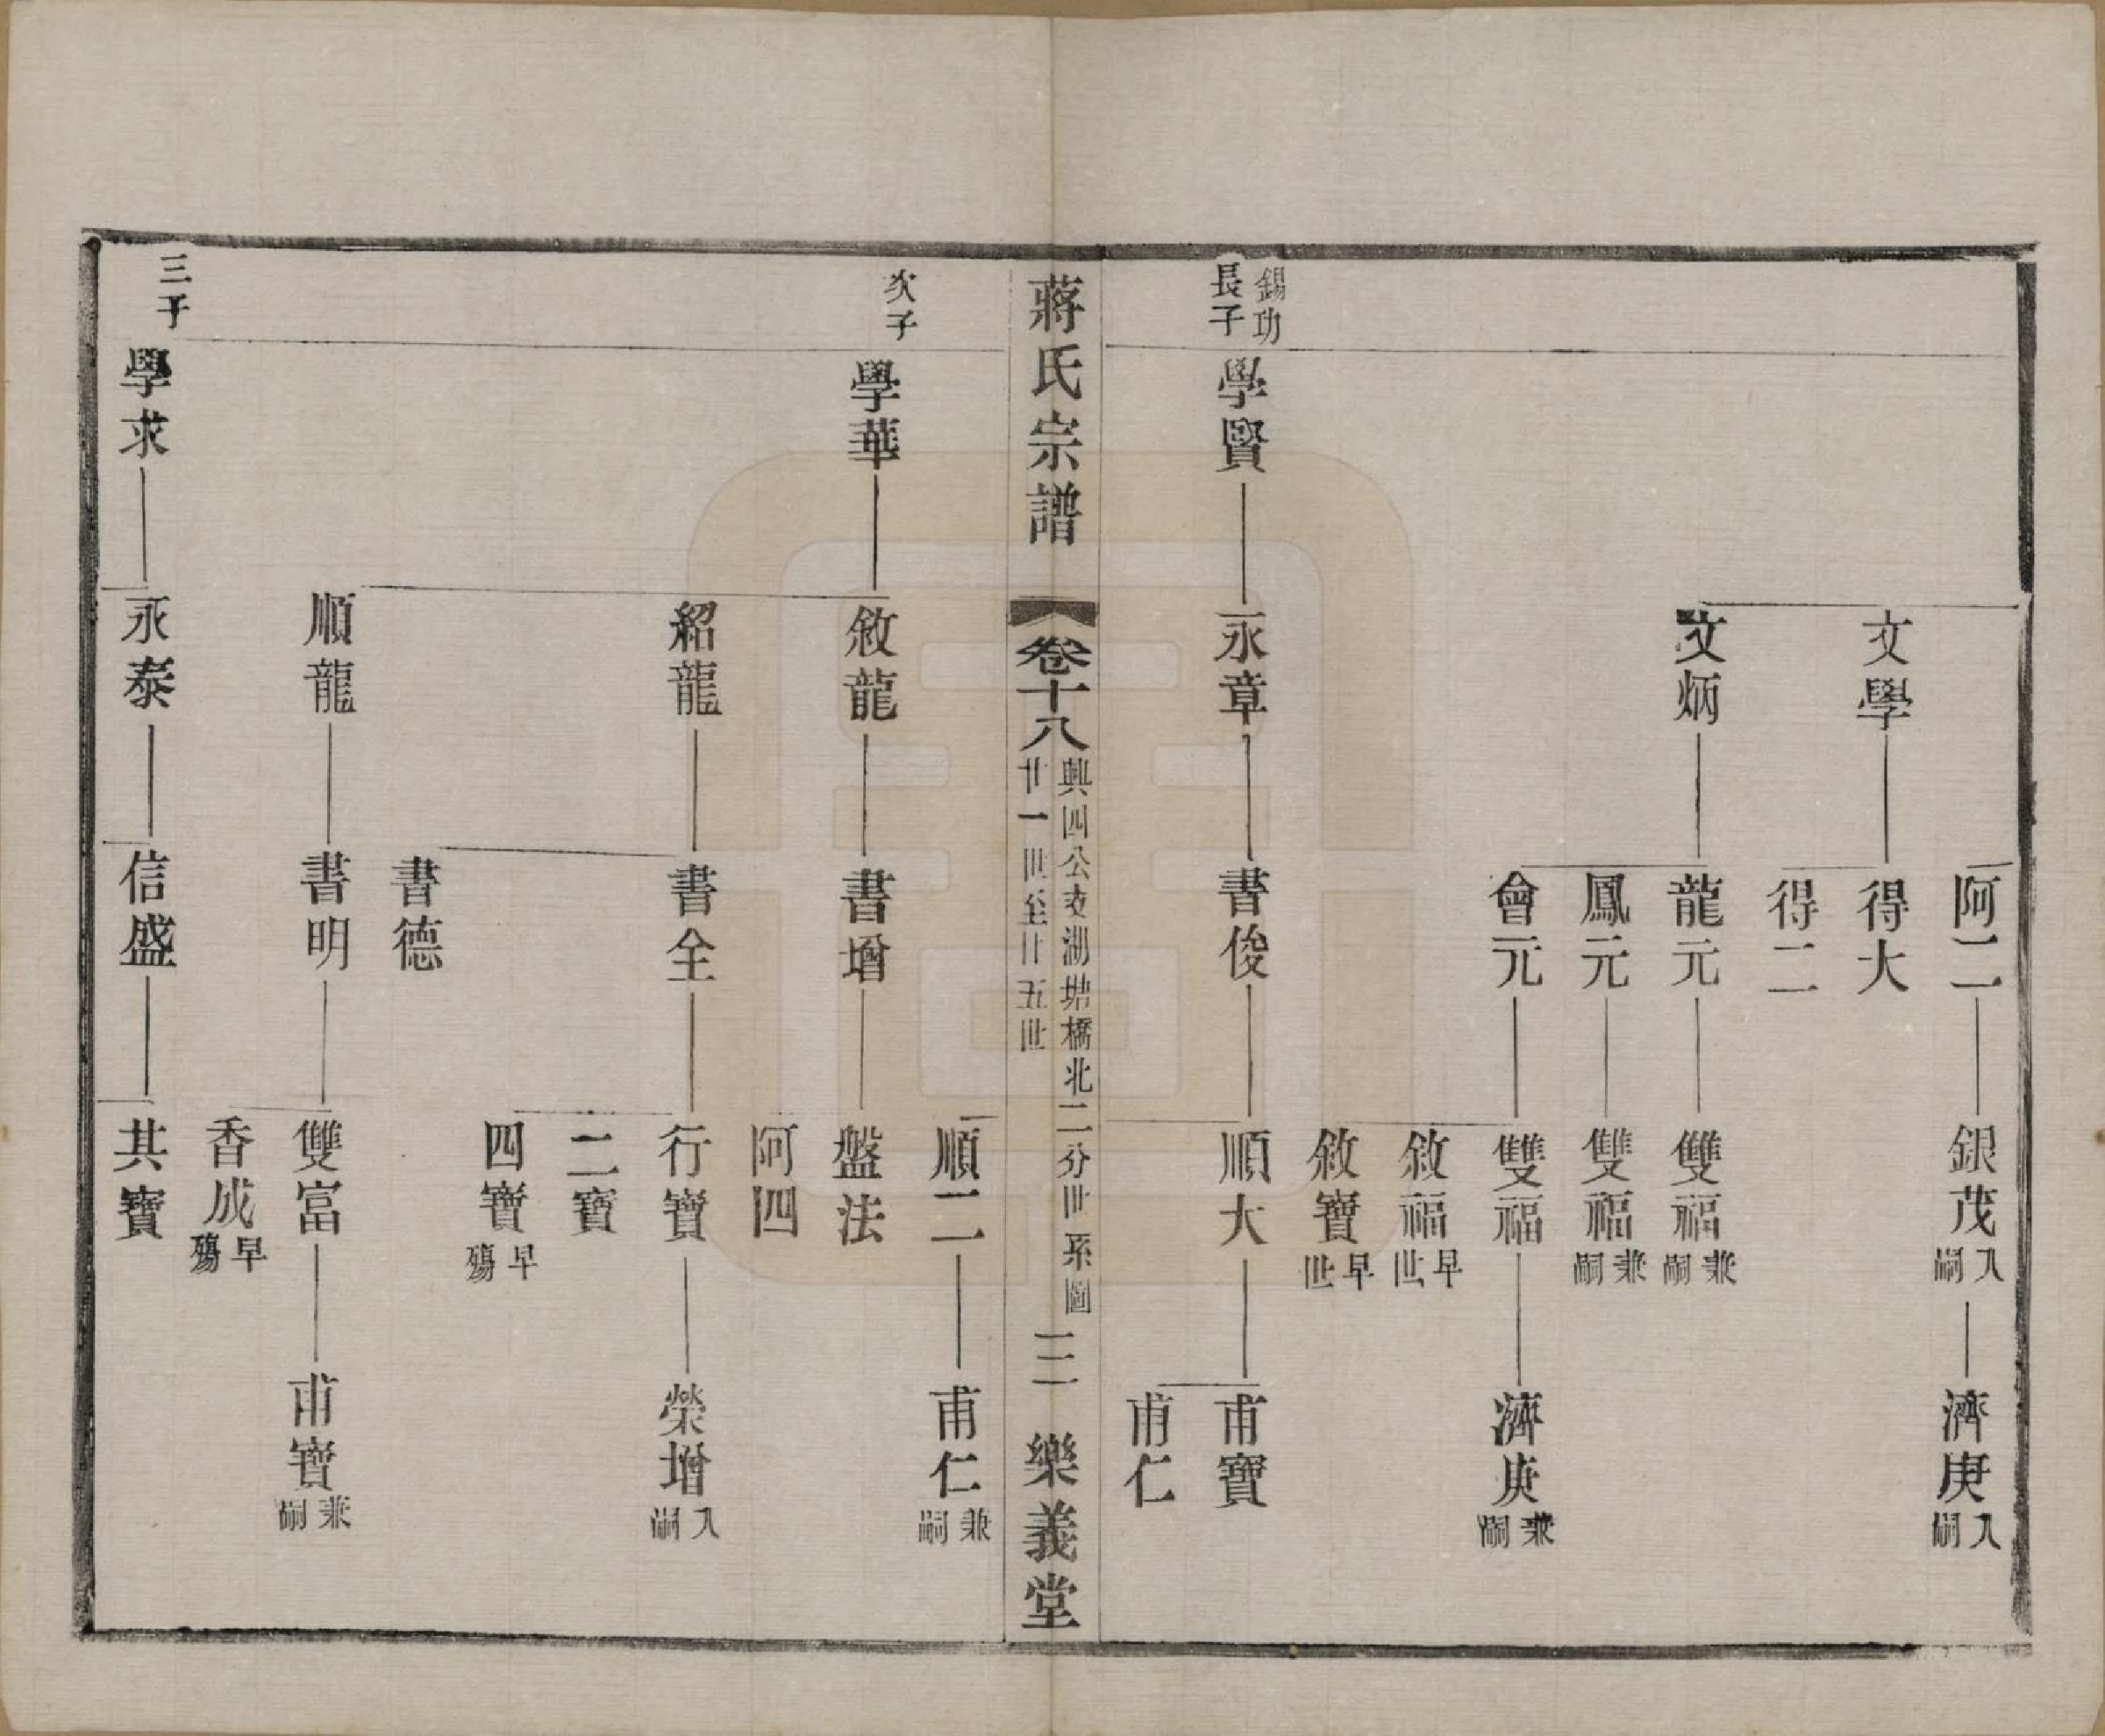 阿二 銀茂入嗣 濟庚入嗣
文學 得大
得二
文炳 龍元 雙福兼嗣
鳳元 雙福兼嗣
會元 雙福 濟庚兼嗣
敘福早世
敘寶早世
錫功長子 學賢 永章 書俊 順大 甫寶
甫仁
蔣氏宗譜 卷十八 興四公支湖塘橋北二分世系圖 廿一世至廿五世 三 樂義堂
順二 甫仁兼嗣
次子 學華 敘龍 書增 盤法
阿四
紹龍 書全 行寶 榮增入嗣
二寶
四寶早殤
書德
順龍 書明 雙富 甫寶兼嗣
香成早殤
三子 學求 永泰 信盛 其寶